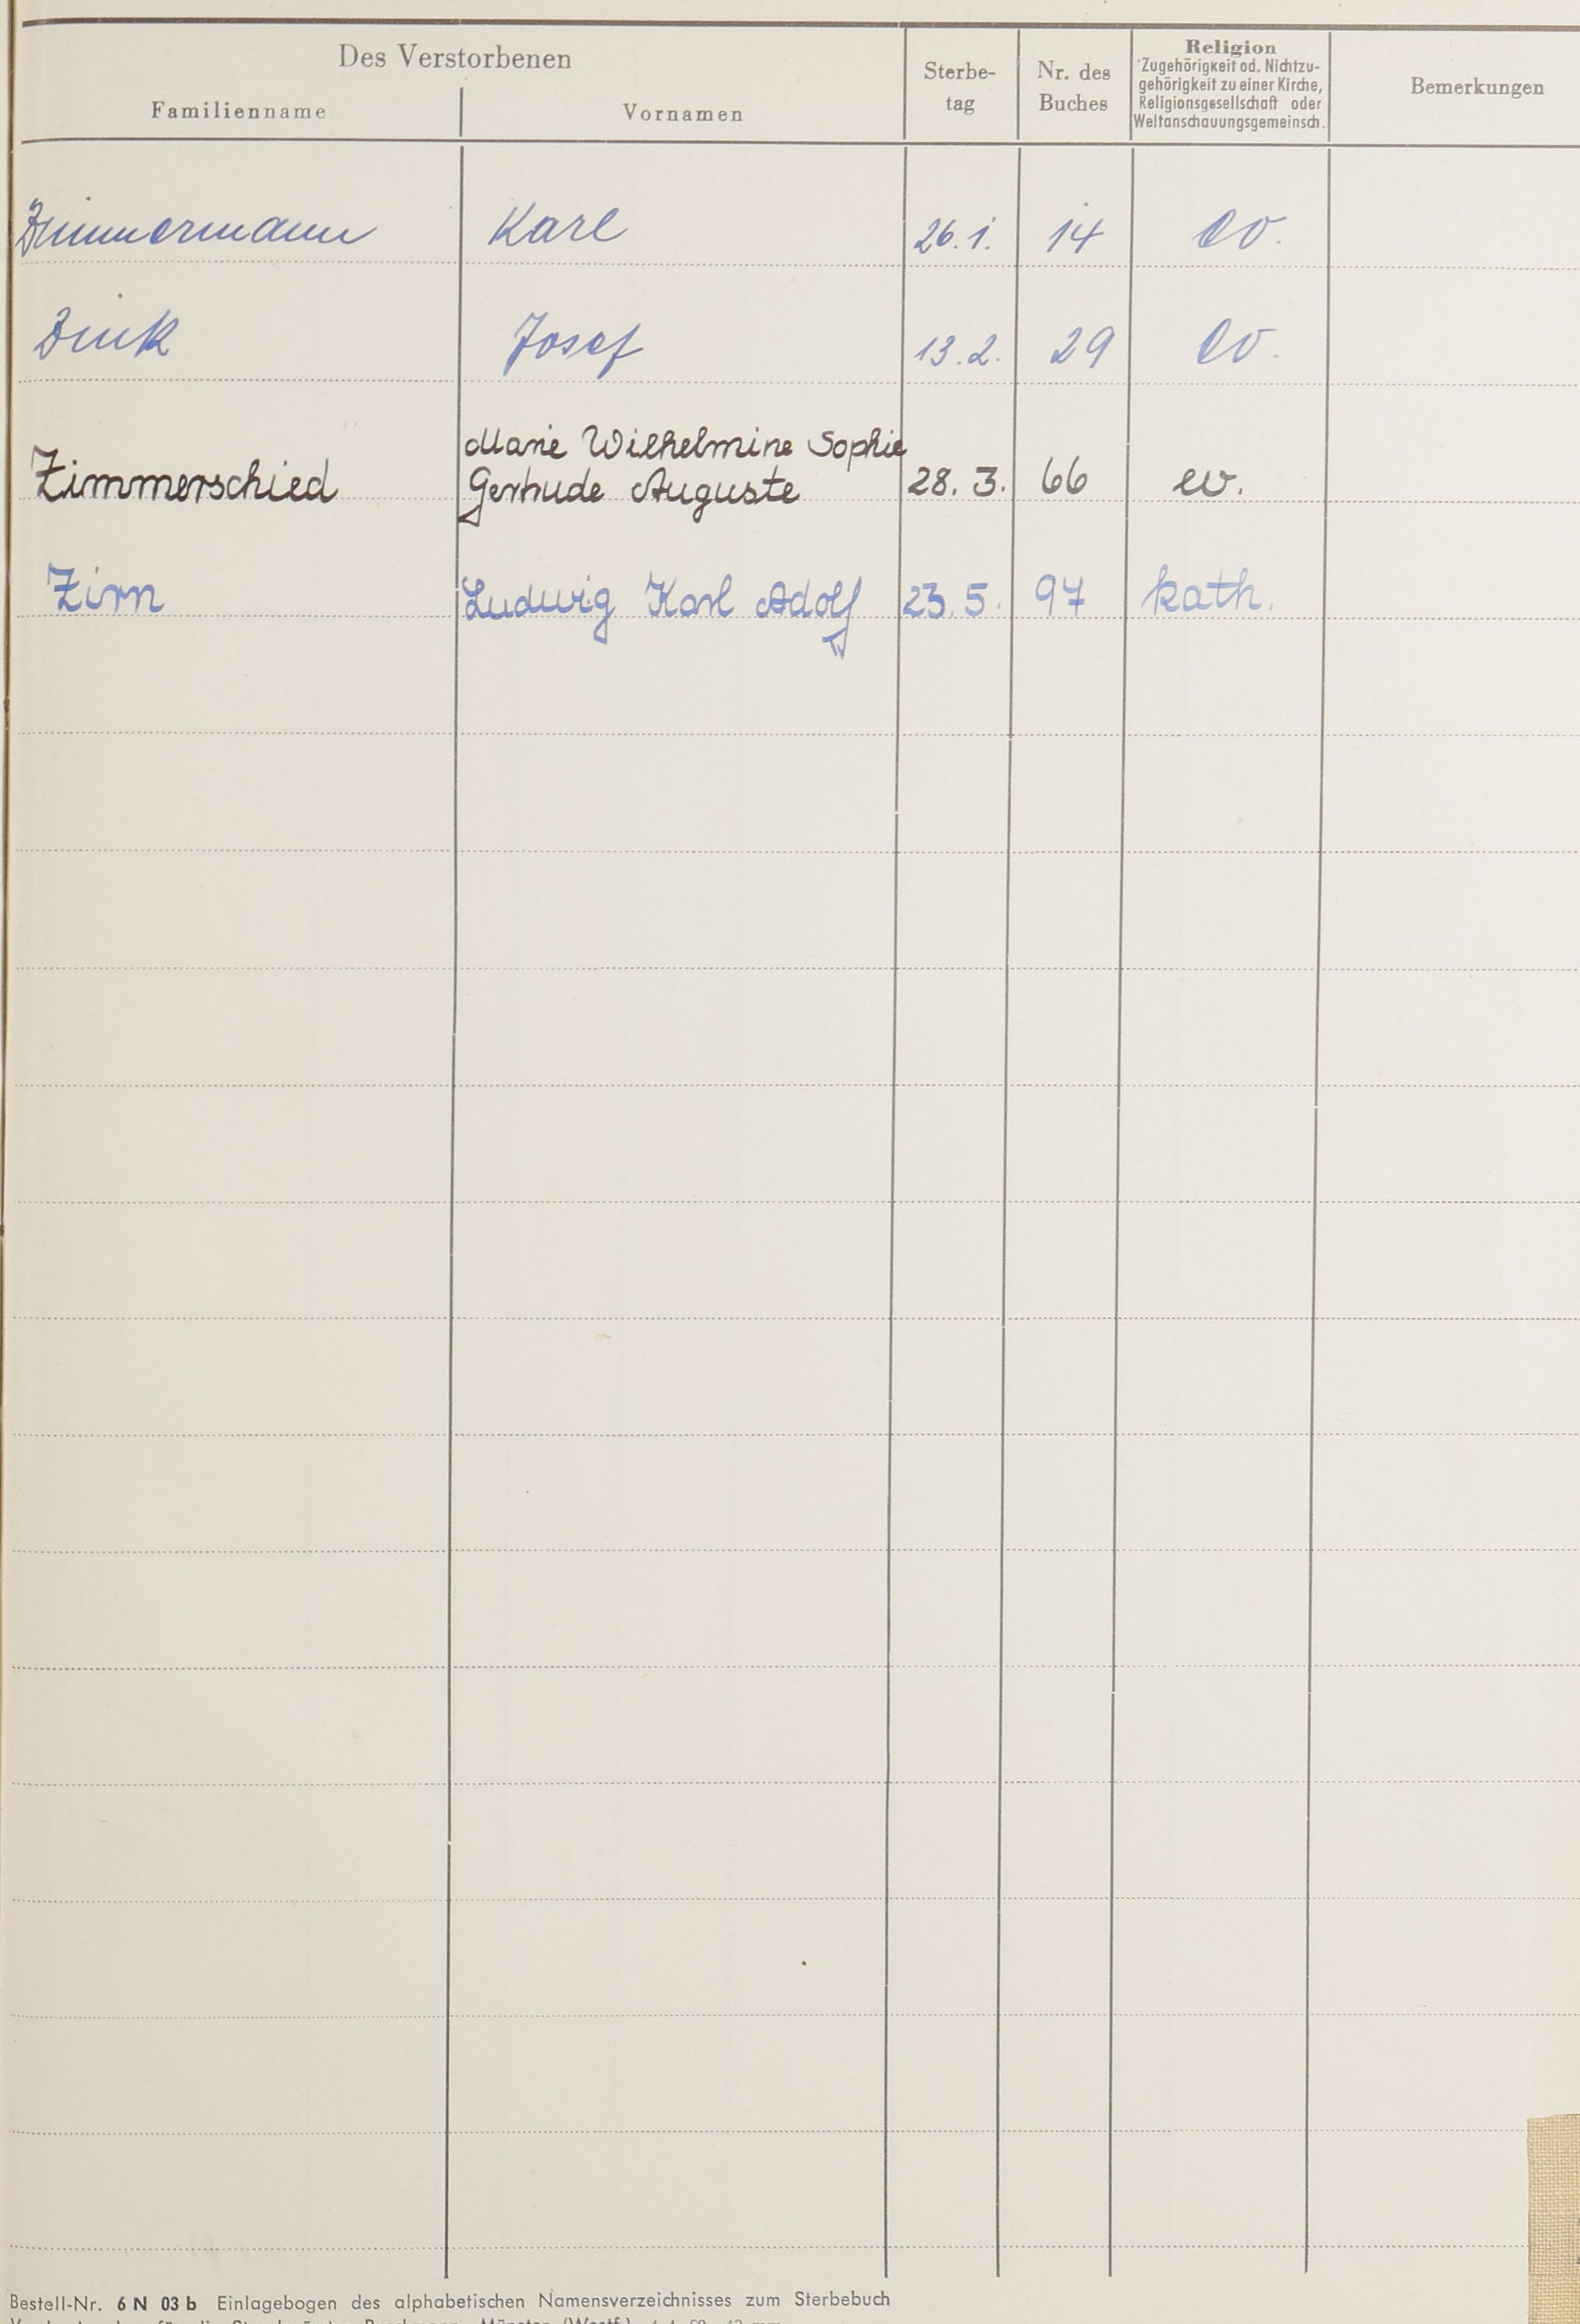 Des Verstorbenen
Familienname
Vornamen
Sterbe-
tag
Nr. des
Buches
Religion
Zugehörigkeit od. Nichtzu-
gehörigkeit zu einer Kirche,
Religionsgesellschaft oder
Weltanschauungsgemeinsch.
Bemerkungen
Zimmermann Karl 26.1. 14 ev.
Zink Josef 13.2. 29 ev.
Marie Wilhelmine Sophie
Zimmerschied Gertrude Auguste 28. 3. 66 ev.
Zirn Ludwig Karl Adolf 23.5. 97 kath.
Bestell-Nr. 6 N 03 b Einlagebogen des alphabetischen Namensverzeichnisses zum Sterbebuch